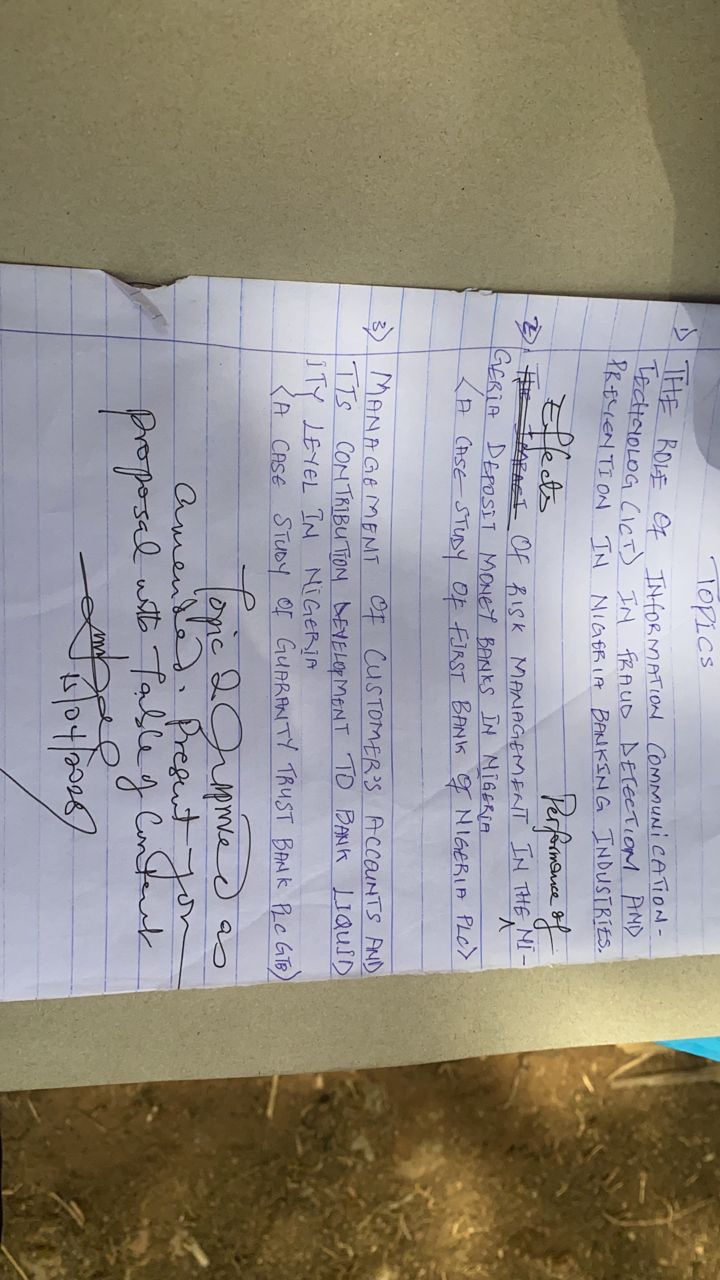 TOPICS
1) THE ROLE OF INFORMATION COMMUNICATION-
TECHNOLOG (ICT) IN FRAUD DETECTION AND
PREVENTION IN NIGERIA BANKING INDUSTRIES.
Effects Performance of
2) THE IMPACT OF RISK MANAGEMENT IN THE NI-
GERIA DEPOSIT MONEY BANKS IN NIGERIA
(A CASE STUDY OF FIRST BANK OF NIGERIA PLC)
3) MANAGEMENT OF CUSTOMER'S ACCOUNTS AND
ITS CONTRIBUTION DEVELOPMENT TO BANK LIQUID
ITY LEVEL IN NIGERIA
(A CASE STUDY OF GUARANTY TRUST BANK PLC GTB)
Topic 2 approved as
amended. Present your
proposal with Table of Content
15/04/2025